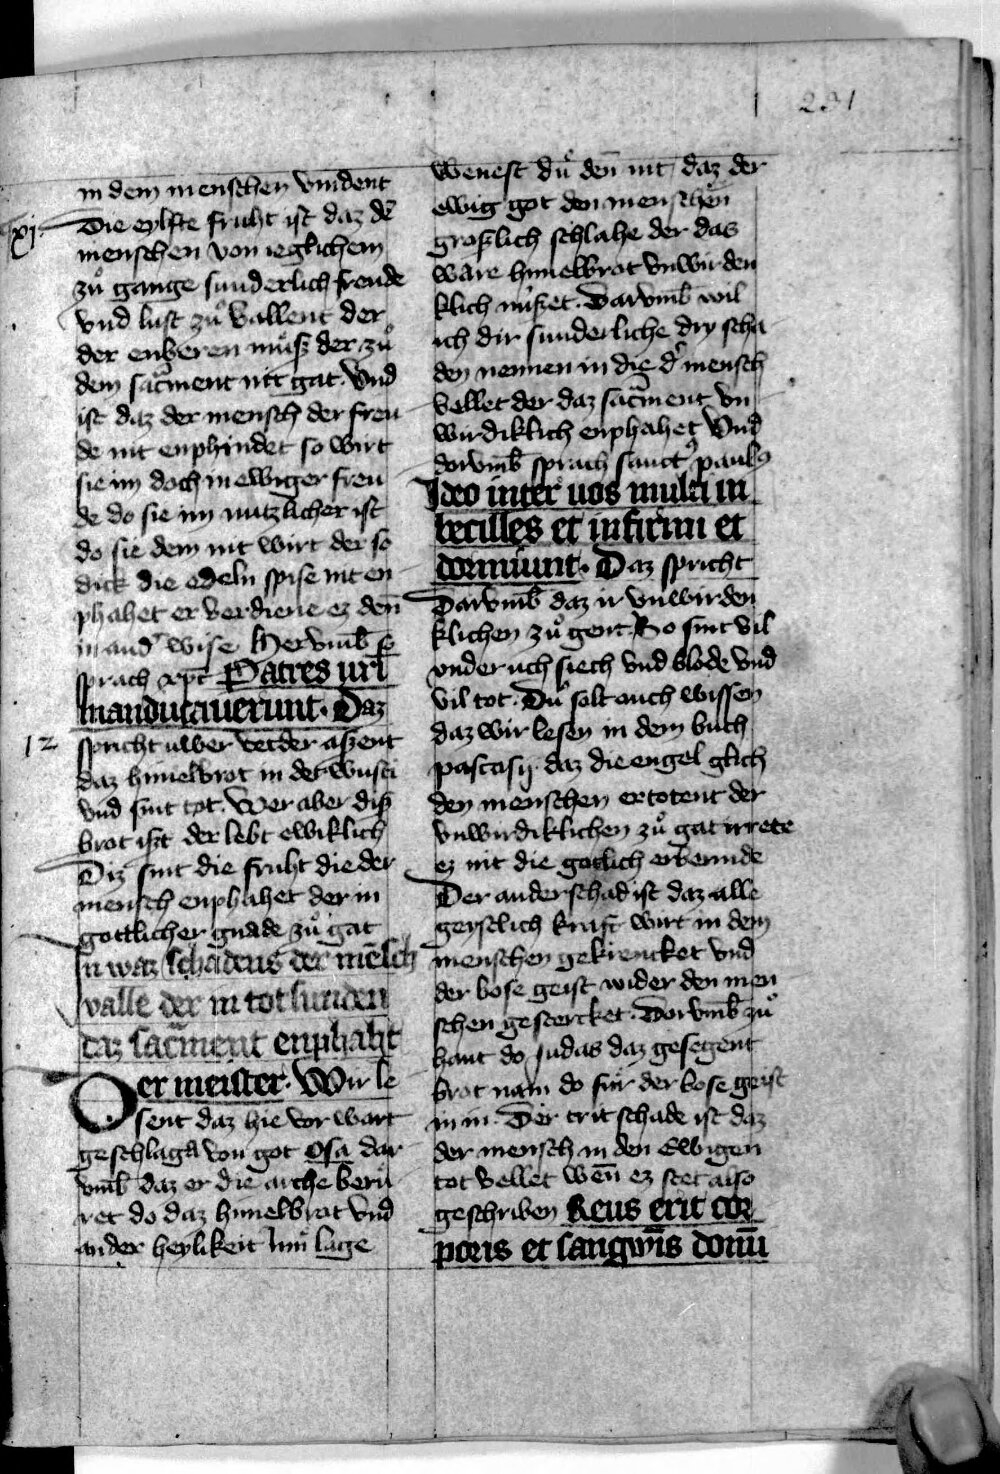 231
in dem menschen vindent
xj Die eylfte fruht ist daz dē
menschen von ieglichem
zuͦ gange sunderlich freude
vnd lust zuͦ vallent der
der enberen muͦsz der zuͦ
dem sacͣment nit gat. Vnd
ist daz der mensch der freu
de nit enphindet so wirt
sie im doch in ewiger freu
de do sie im nutzlicher ist
do sie dem nit wirt der so
dick die edeln spise nit en
phahet er verdiene ez denn̄
in and᾽ wise Hervmb̄
sprach xp̄c Patres uri
manducauerunt. Daz
12 spricht uwer vetder aszent
daz himelbrot in der wusti
vnd sint tot. Wer aber disz
brot iszt der lebt ewiklich
Diz sint die fruht die der
mensch enphahet der in
gottlicher gnade zuͦ gat
In waz schadens der mēsch
valle der in totsunden
daz sacͣment enphaht
Der meister. Wir le
sent daz hie vor wart
geschlagē von got Osa dar
vmb̄ daz er die arche beruͦ
ret do daz himelbrot vnd
ander heylikeit inn̄ lage
Wenest duͦ den̄ nit daz der
ewig got den menschen
groszlich schlahe der das
ware himelbrot vnwirden
klich nuͥszet. Darvmb̄ wil
ich dir sunderliche dry scha
den nennen in die d᾽ mensch
vellet der daz sacͣment vn
wirdiklich enphahet Vnd
dorvmb̄ sprach sanctꝰ paulꝰ
Ideo inter uos multi in
becilles et infirmi et
dormiunt. Daz spricht
Darvmb̄ daz ir vnwirden
klichen zuͦ gent. So sint vil
vnder uch siech vnd blode vnd
vil tot. Duͦ solt ouch wissen
daz wir lesen in dem buch
pascasij. daz die engel glich
den menschen ertotent der
vnwirdiklichen zuͦ gat irrete
ez nit die gotlich erbermde
Der ander schad ist daz alle
geystlich kraft wirt in dem
menschen gekrencket vnd
der bose geist wider den men
schen gestercket. Dorvmb̄ zuͦ
hant do judas daz gesegent
brot nam do fuͦr der bose geist
in in. Der trit schade ist daz
der mensch in den Ewigen
tot vellet wen̄ ez stet also
geschriben Reus erit cor
poris et sangwis̄ domī